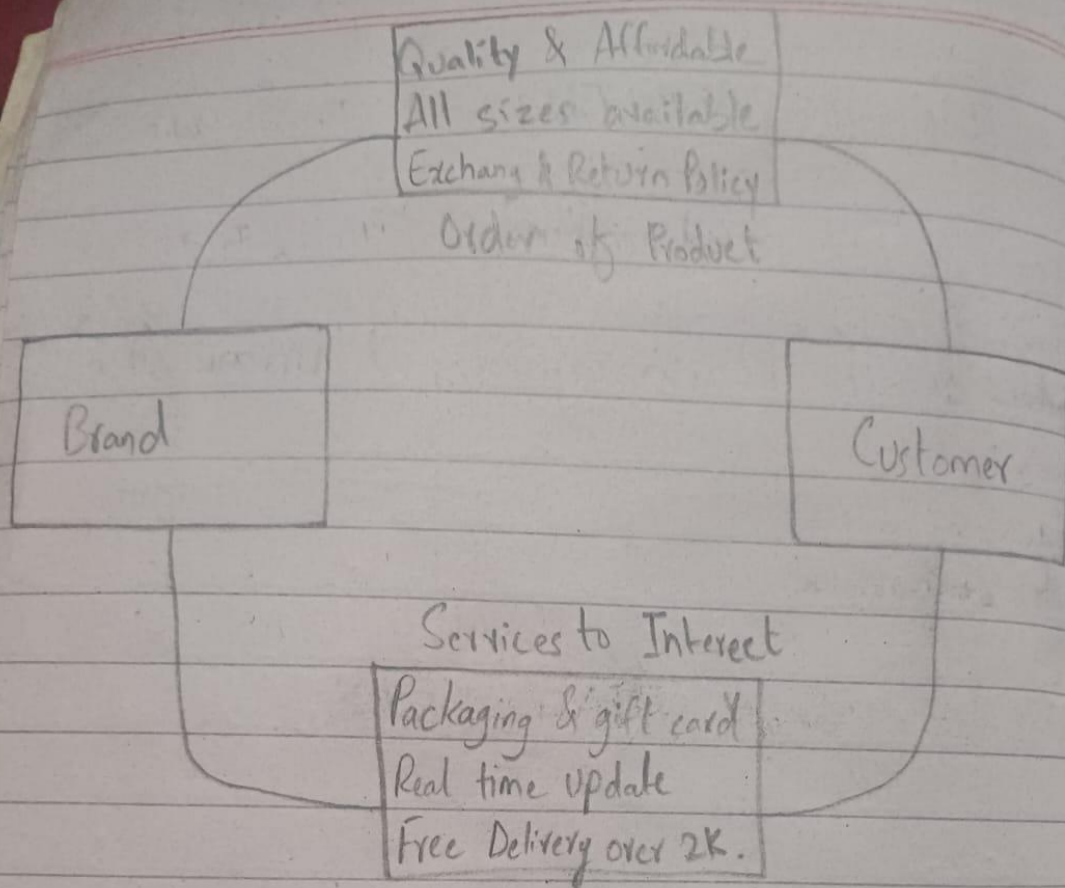 Quality & Affordable
All sizes available
Exchang & Return Policy
Order of Product
Brand
Customer
Services to Interect
Packaging & gift card
Real time update
Free Delivery over 2K.